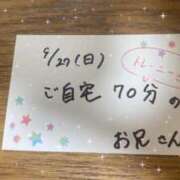 9/27(日)
ご自宅 70分の
お兄さん